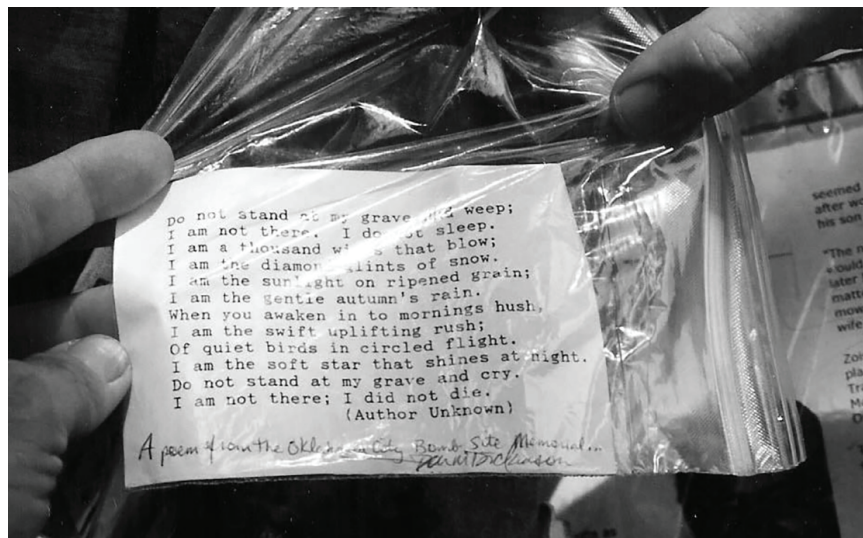 Do not stand at my grave and weep;
I am not there. I do not sleep.
I am a thousand winds that blow;
I am the diamond glints of snow.
I am the sunlight on ripened grain;
I am the gentle autumn's rain.
When you awaken in to mornings hush,
I am the swift uplifting rush;
Of quiet birds in circled flight.
I am the soft star that shines at night.
Do not stand at my grave and cry.
I am not there; I did not die.
(Author Unknown)
A poem from the Oklahoma City Bomb Site Memorial...
Dickinson
seemed
after w
his son
"The
later
matt
mow
wife
Zo
pla
Tra